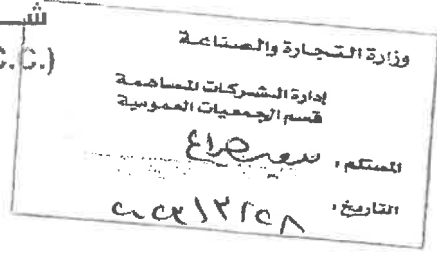 شـــ
C.C.)
وزارة التجارة والصناعة
إدارة الشركات المساهمة
قسم الجمعيات العمومية
المستلم :
التاريخ :